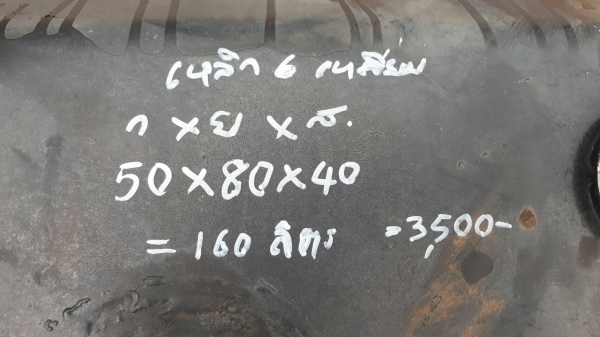 เหล็ก 6 เหลี่ยม
ก x ย x ส.
50x80x40
= 160 ลิตร =3,500-